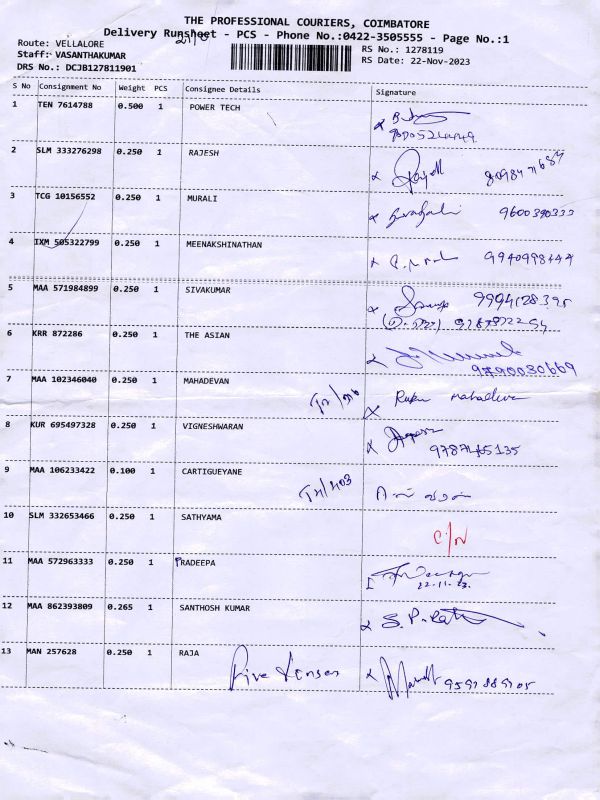 THE PROFESSIONAL COURIERS, COIMBATORE
Delivery Runsheet - PCS - Phone No.:0422-3505555 - Page No.:1
Route: VELLALORE
Staff: VASANTHAKUMAR
DRS No.: DCJB127811901
RS No.: 1278119
RS Date: 22-Nov-2023
S No Consignment No Weight PCS Consignee Details Signature
1 TEN 7614788 0.500 1 POWER TECH
2 SLM 333276298 0.250 1 RAJESH
3 TCG 10156552 0.250 1 MURALI 9600390333
4 IXM 505322799 0.250 1 MEENAKSHINATHAN 9940998444
5 MAA 571984899 0.250 1 SIVAKUMAR 9994128395
6 KRR 872286 0.250 1 THE ASIAN
9790030669
7 MAA 102346040 0.250 1 MAHADEVAN mahadevan
8 KUR 695497328 0.250 1 VIGNESHWARAN
9787465135
9 MAA 106233422 0.100 1 CARTIGUEYANE
10 SLM 332653466 0.250 1 SATHYAMA
C/N
11 MAA 572963333 0.250 1 PRADEEPA
22.11.23.
12 MAA 862393809 0.265 1 SANTHOSH KUMAR
S.P.
13 MAN 257628 0.250 1 RAJA